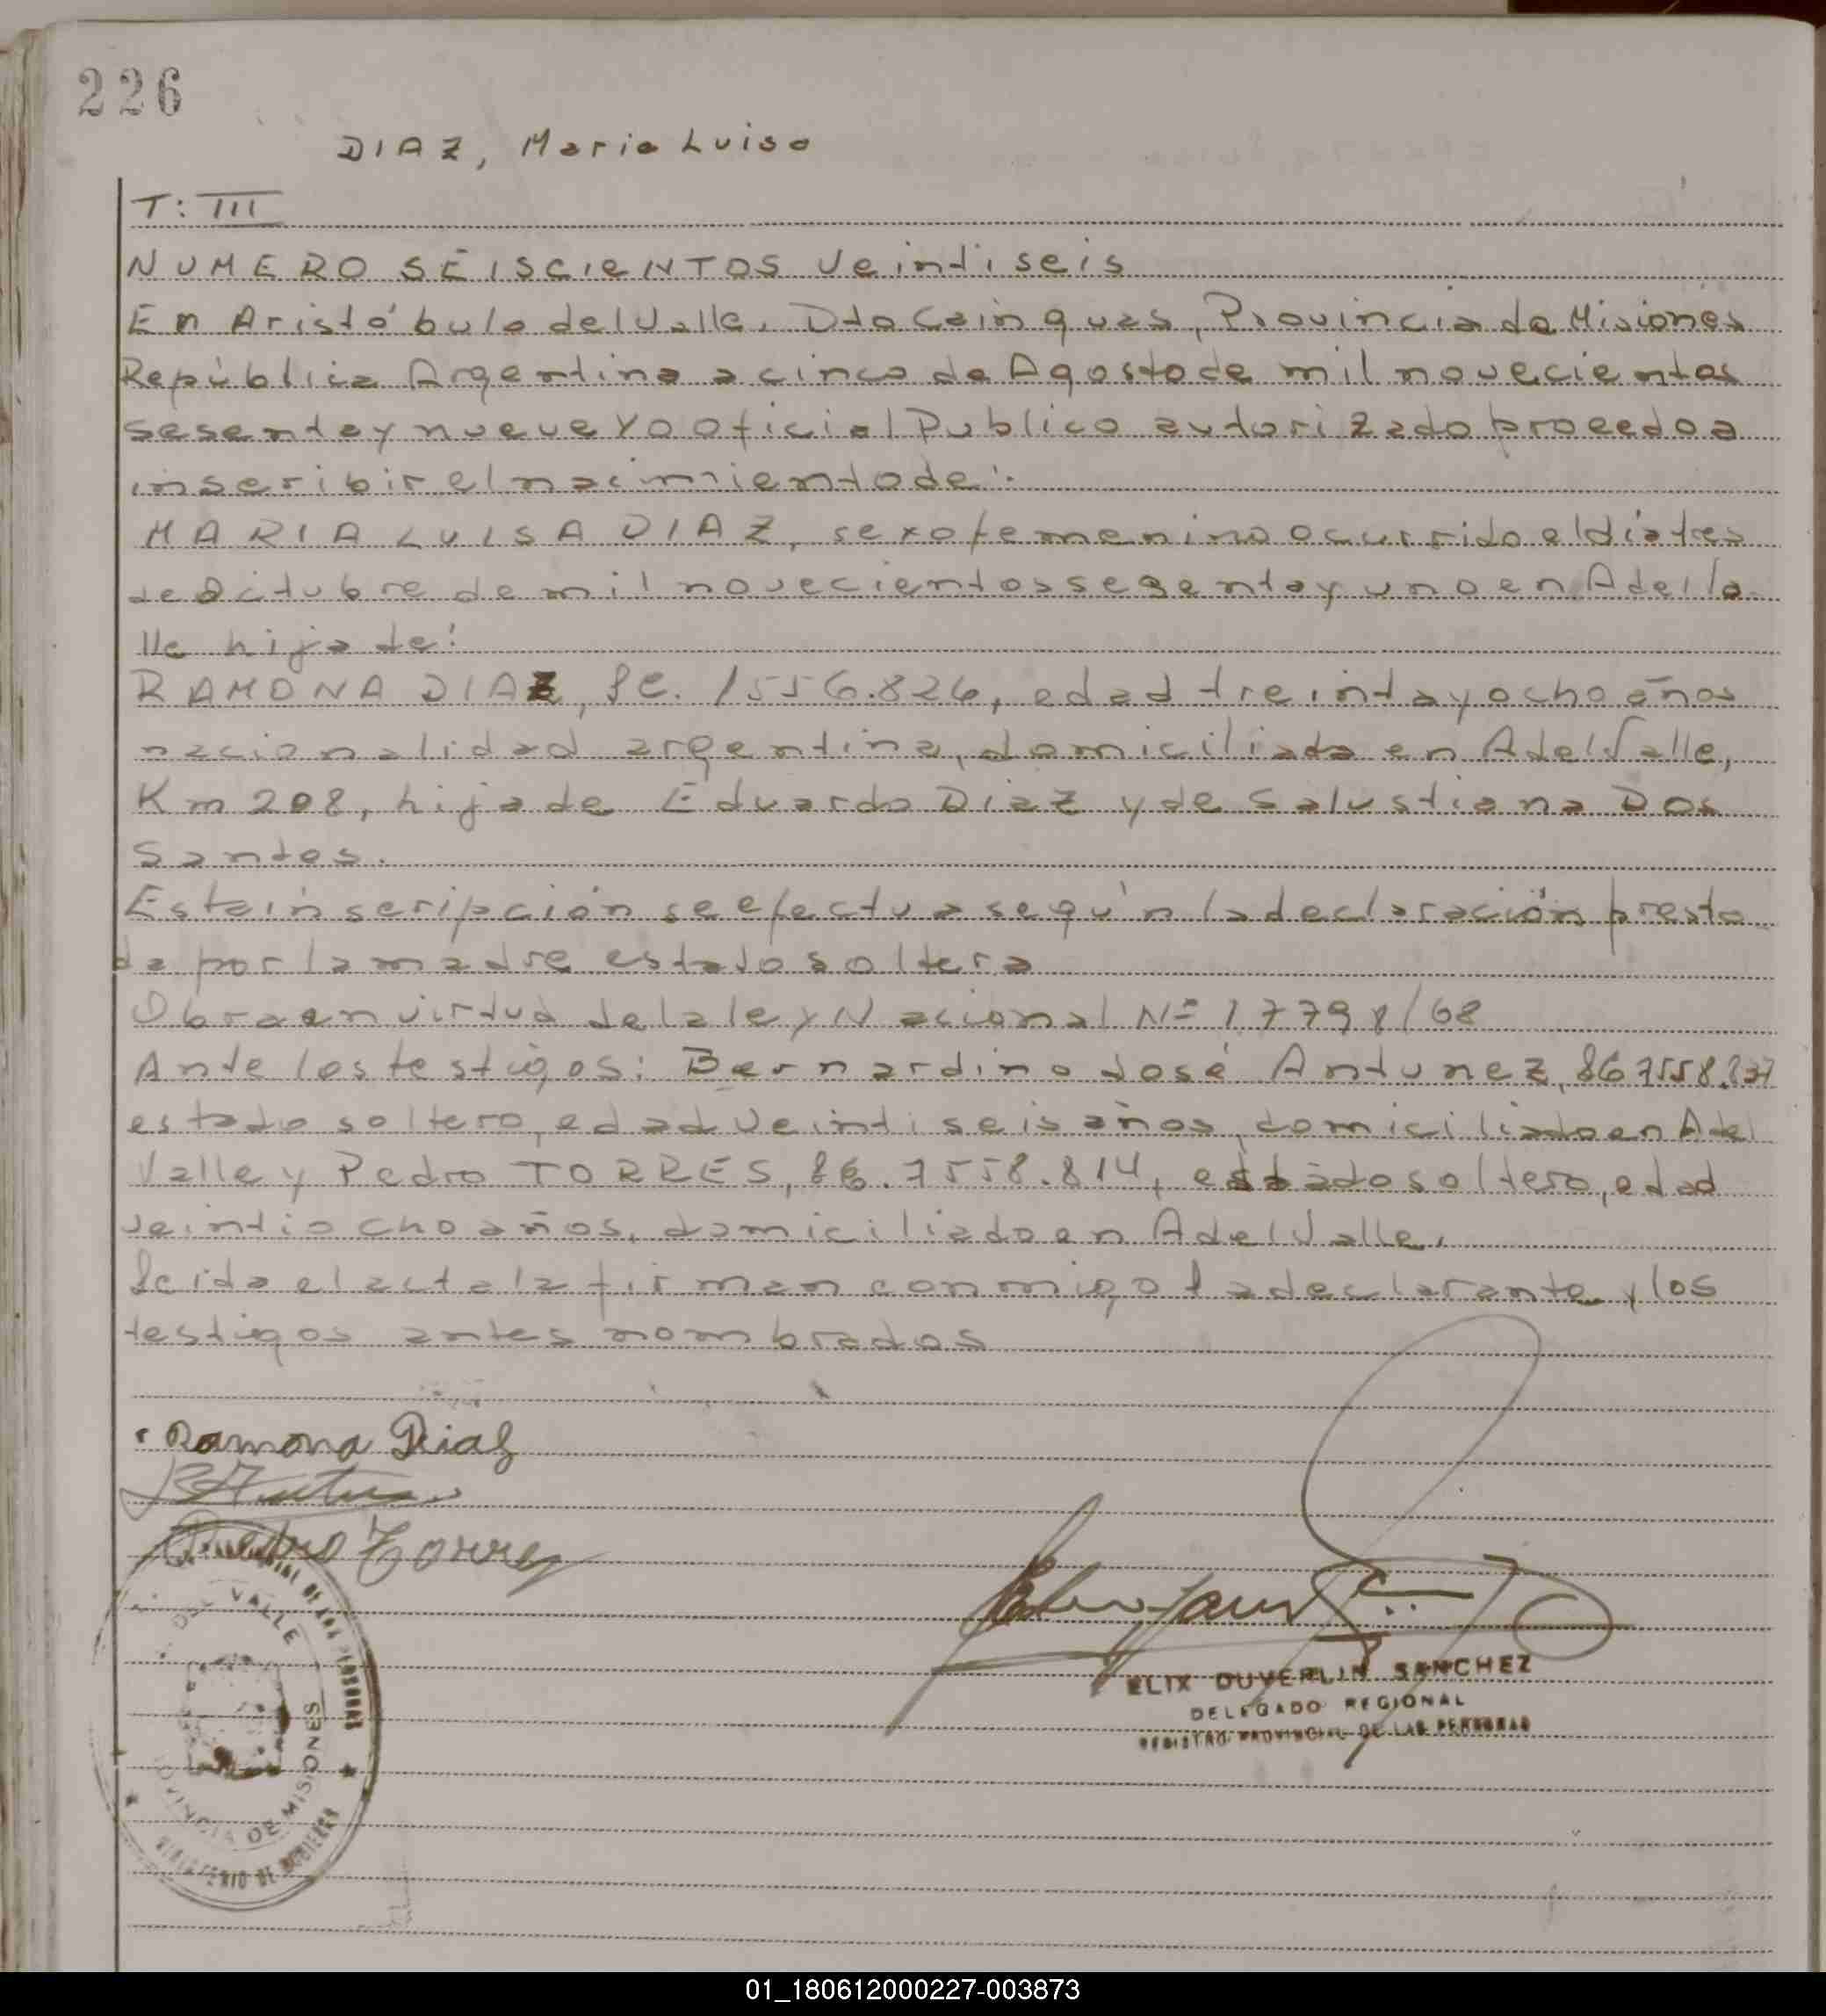 226
DIAZ, Maria Luisa
T: III
NUMERO SEISCIENTOS veintiseis
En Aristóbulo del Valle, Dto Cainguas, Provincia de Misiones
República Argentina a cinco de Agosto de mil novecientos
sesenta y nueve Yo Oficial Publico autorizado procedo a
inscribir el nacimiento de:
MARIA LUISA DIAZ, sexo femenino ocurrido el dia tres
de Octubre de mil novecientos sesenta y uno en A del Va
lle hija de:
RAMONA DIAZ, LC. 1556.826, edad treinta y ocho años
nacionalidad argentina, domiciliada en A del Valle,
Km 208, hija de Eduardo Diaz y de Salustiana Dos
Santos.
Esta inscripción se efectua según la declaración presta
da por la madre estado soltera
Obra en virtud de la ley Nacional Nº 17798/68
Ante los testigos: Bernardino José Antunez,
estado soltero, edad veintiseis años, domiciliado en A del
Valle y Pedro TORRES, LE. 7558.814, estado soltero, edad
veintiocho años, domiciliado en A del Valle.
Leida el acta la firman conmigo la declarante y los
testigos antes nombrados
Ramona Diaz
Pedro Torres
DEL VALLE
DE LAS PERSONAS
PROVINCIA DE MISIONES
MINISTERIO DE GOBIERNO
ELIX DUVERLIN SANCHEZ
DELEGADO REGIONAL
REGISTRO PROVINCIAL DE LAS PERSONAS
01_180612000227-003873